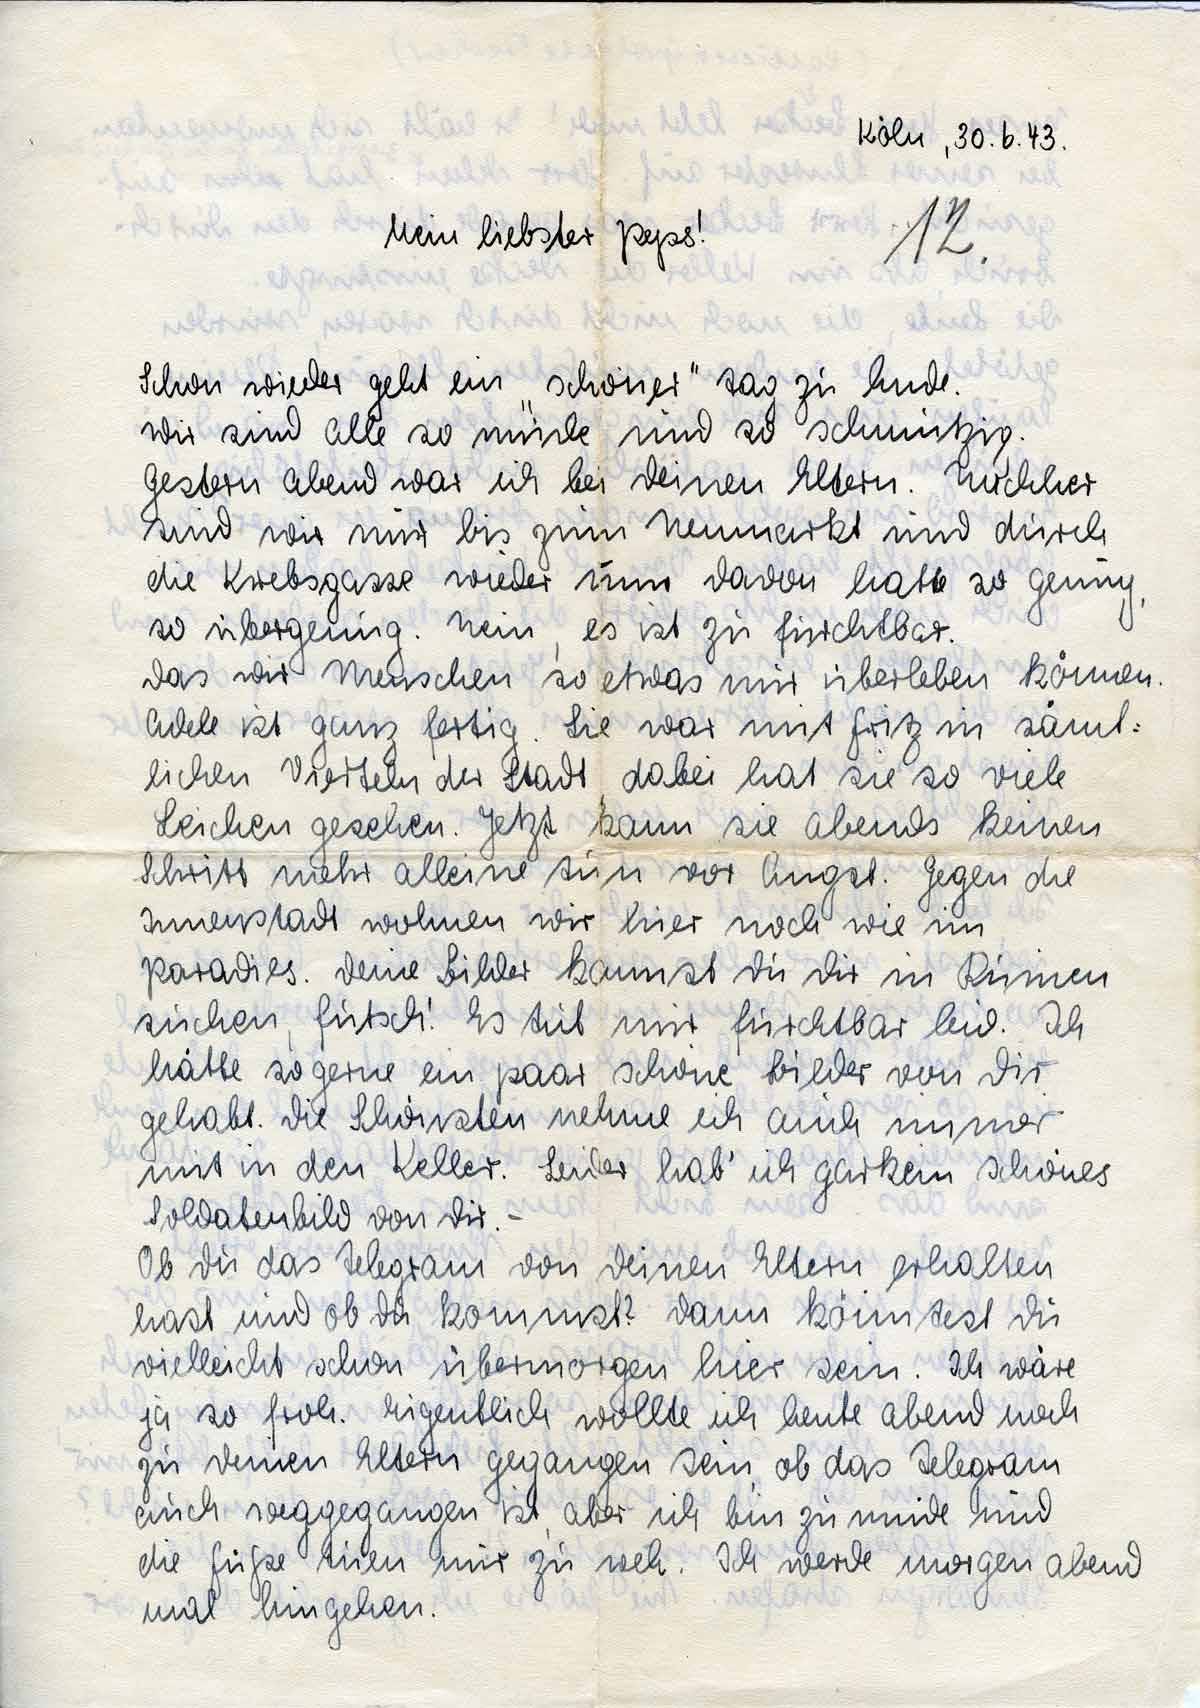 Köln, 30.6.43.
12.
Mein liebster Peps!
Schon wieder geht ein „schöner" Tag zu Ende.
Wir sind alle so müde und so schmutzig.
Gestern abend war ich bei Deinen Eltern. Nachher
sind wir nur bis zum Neumarkt und durch
die Krebsgasse wieder davon hatte so genug,
so übergenug. Nein, es ist zu furchtbar.
Das wir Menschen so etwas nur überleben können.
Adele ist ganz fertig. Sie war mit Fritz in sämt-
lichen Vierteln der Stadt dabei hat sie so viele
Leichen gesehen. Jetzt kann sie abends keinen
Schritt mehr alleine tun vor Angst. Gegen die
Innenstadt wohnen wir hier noch wie im
Paradies. Deine Bilder kannst Du Dir in Ruinen
suchen, futsch! Es tut mir furchtbar leid. Ich
hätte so gerne ein paar schöne Bilder von Dir
gehabt. Die Schönsten nehme ich auch immer
mit in den Keller. Leider hab' ich gar kein schönes
Soldatenbild von Dir. –
Ob Du das Telegram von Deinen Eltern erhalten
hast und ob Du kommst? Dann könntest Du
vielleicht schon übermorgen hier sein. Ich wäre
ja so froh. Eigentlich wollte ich heute abend noch
zu Deinen Eltern gegangen sein, ob das Telegram
auch weggegangen ist, aber ich bin zu müde und
die Füße tuen mir zu weh. Ich werde morgen abend
mal hingehen.